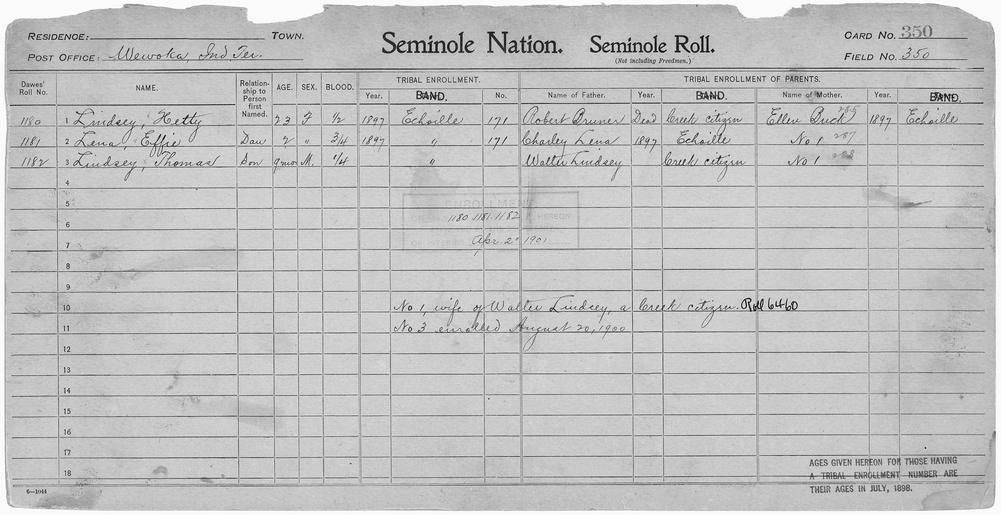 RESIDENCE: TOWN. Seminole Nation. Seminole Roll. CARD NO. 350
(Not including Freedmen.)
POST OFFICE: Wewoka, Ind Ter. FIELD NO. 350
Dawes' Roll No. NAME. Relationship to Person first Named. AGE. SEX. BLOOD. TRIBAL ENROLLMENT. TRIBAL ENROLLMENT OF PARENTS.
Year. BAND. No. Name of Father. Year. BAND. Name of Mother. Year. BAND.
1180 1 Lindsey, Hetty 23 F 1/2 1897 Echoille 171 Robert Bruner Dead Creek citizen Ellen Buck 1897 Echoille
1181 2 Lena, Effie Dau 2 " 3/4 1897 " 171 Charley Lena 1897 Echoille No 1 287
1182 3 Lindsey, Thomas Son 9mos M. 1/4 " Walter Lindsey Creek citizen No 1
4
5
ENROLLMENT
6 1180 1181 1182 HEREON
7 Apr 2 1901
8
9
10 No 1, wife of Walter Lindsey, a Creek citizen. Roll 6460
11 No 3 enrolled August 20, 1900
12
13
14
15
16
17
18
AGES GIVEN HEREON FOR THOSE HAVING
A TRIBAL ENROLLMENT NUMBER ARE
THEIR AGES IN JULY, 1898.
6—1044